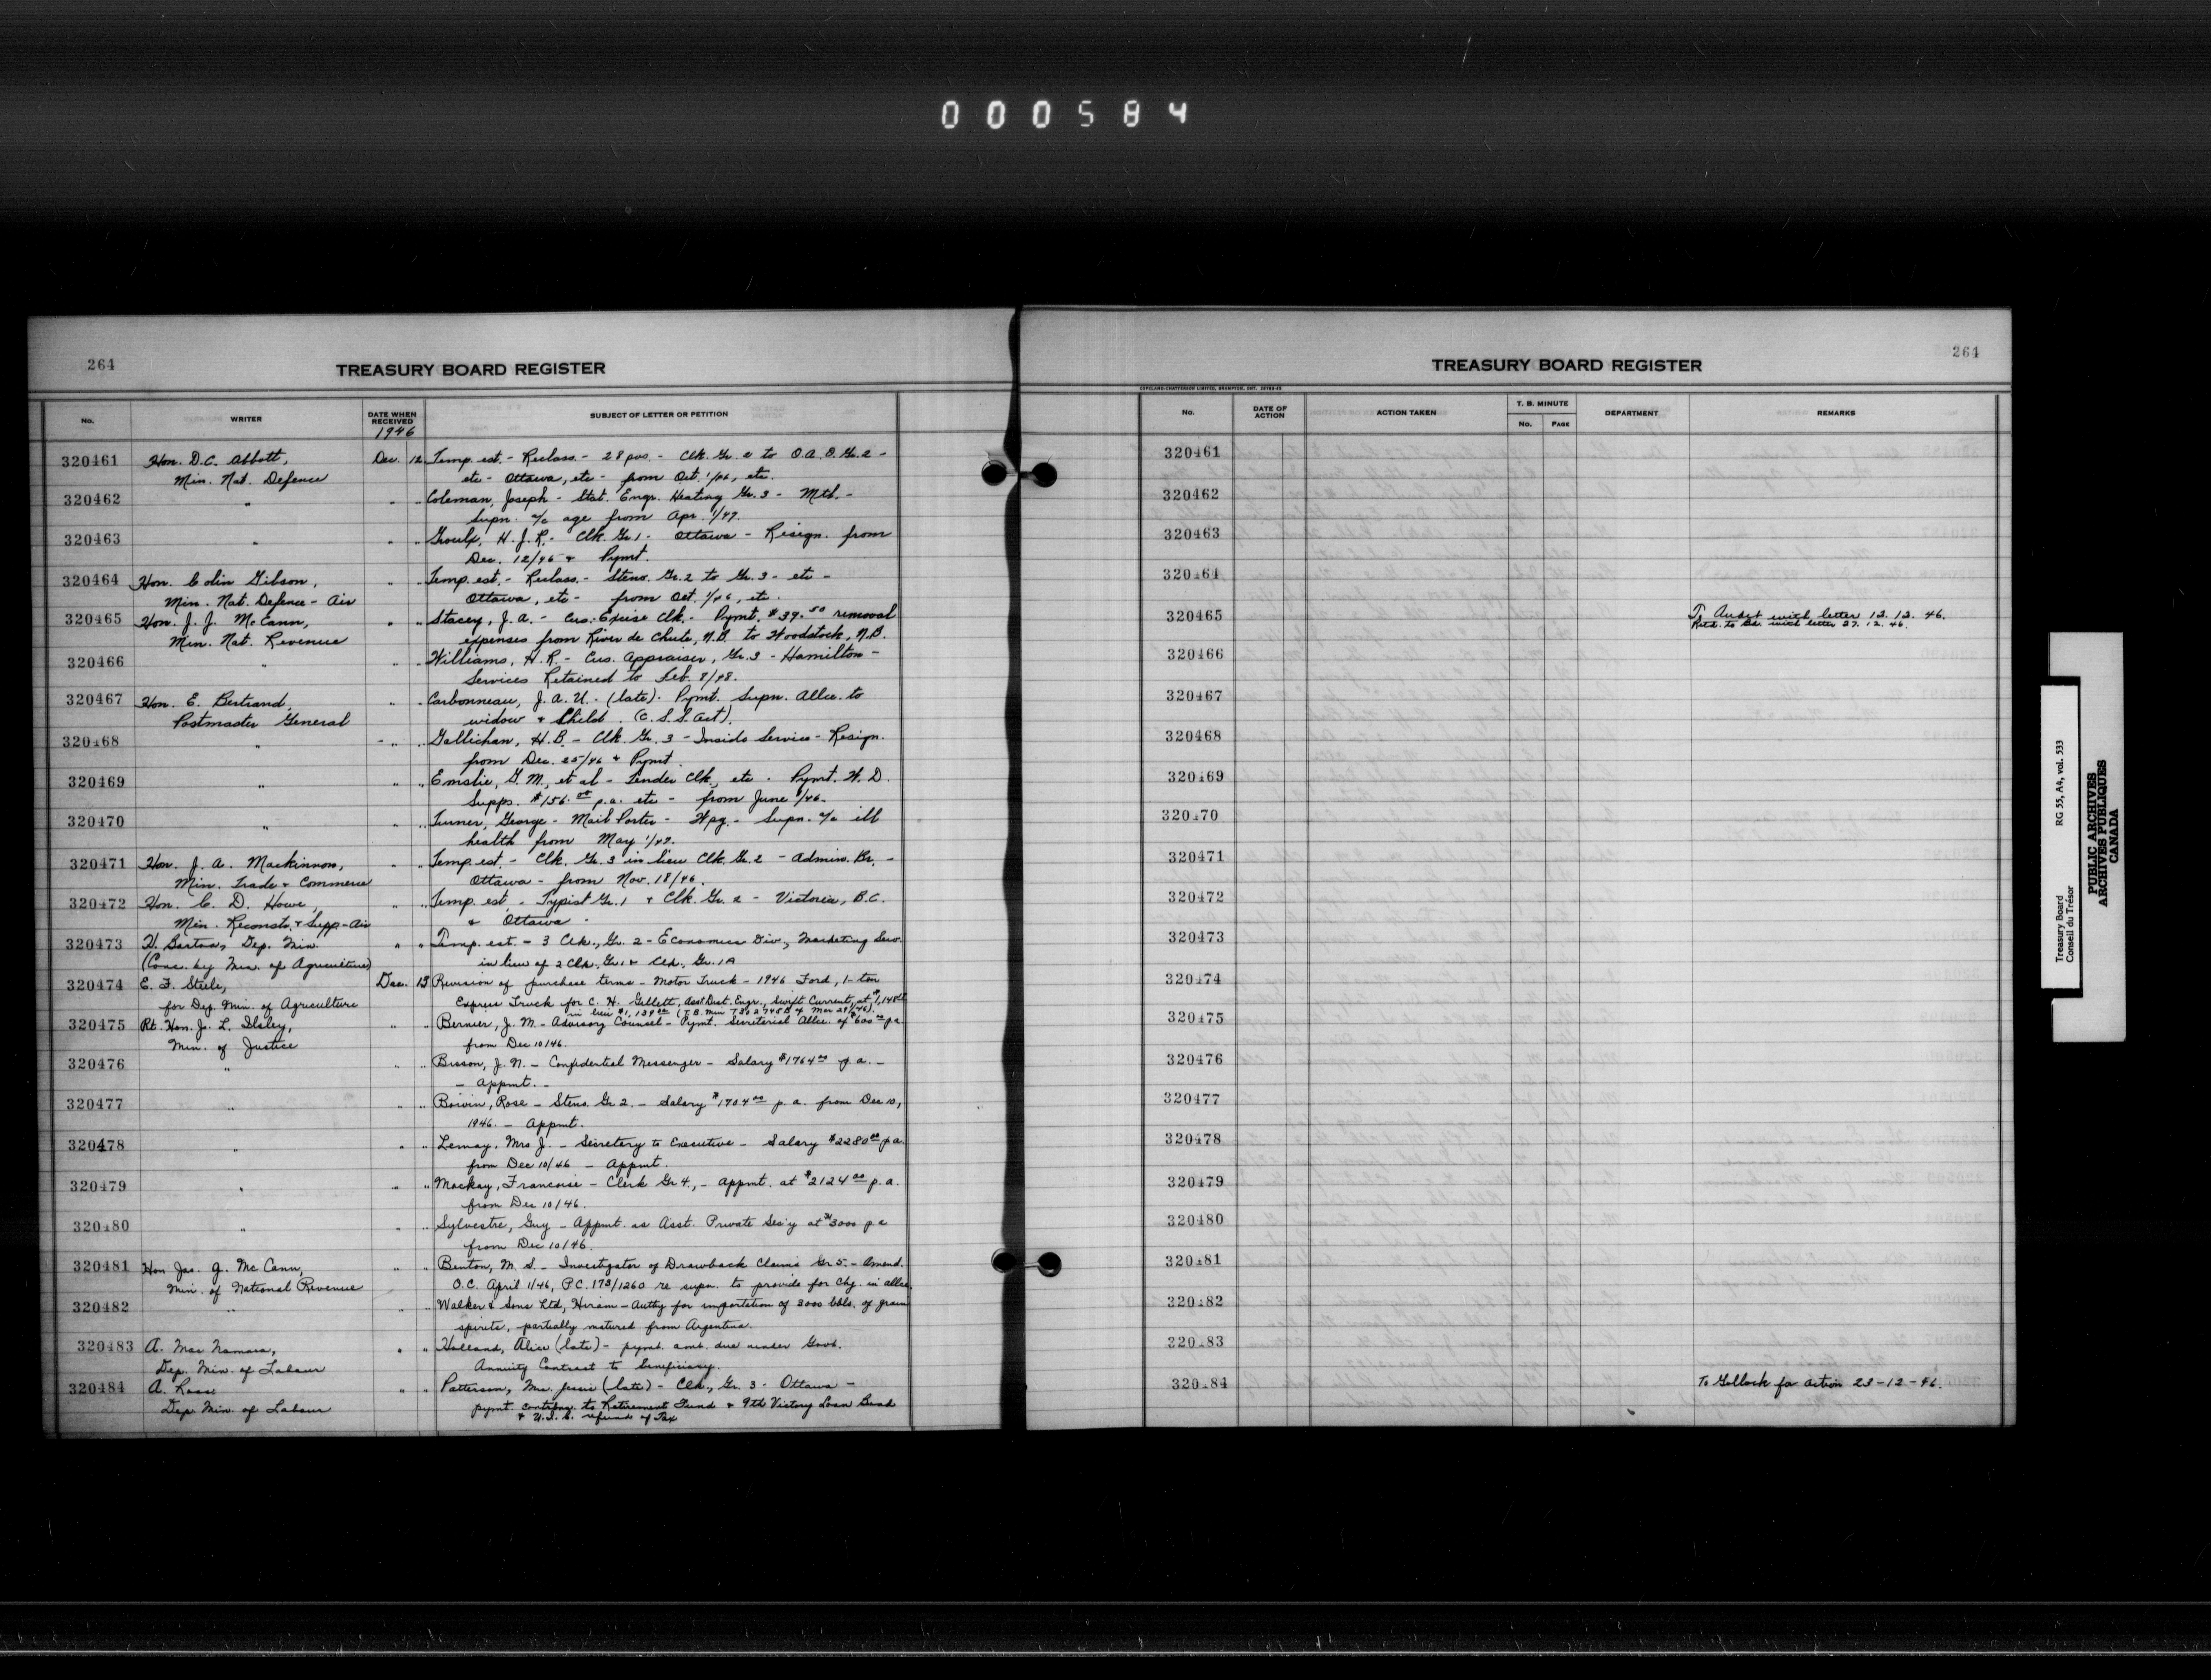 000584
264
TREASURY BOARD REGISTER
No.
WRITER
DATE WHEN RECEIVED
1946
SUBJECT OF LETTER OR PETITION
320461 Hon. D.C. Abbott, Dec. 12 Temp. est. - Reclass. - 28 pos. - Clk. Gr. 2 to O.A. Gr. 2 -
Min. Nat. Defence etc - Ottawa, etc - from Oct. 1/46, etc.
320462 " " " Coleman, Joseph - Stat. Engr. Heating Gr. 3 - Mtl. -
Supn. a/c age from Apr. 1/47.
320463 " " " Groulx, H.J.R. - Clk. Gr. 1 - Ottawa - Resign. from
Dec. 12/46 & Pymt.
320464 Hon. Colin Gibson, " " Temp. est. - Reclass. - Steno. Gr. 2 to Gr. 3 - etc -
Min. Nat. Defence - Air Ottawa, etc - from Oct. 1/46, etc.
320465 Hon. J. J. McCann, " " Stacey, J.A. - Cus. Excise Clk. - Pymt. $39.50 removal
Min. Nat. Revenue expenses from River de Chute, N.B. to Woodstock, N.B.
320466 " " " Williams, H.R. - Cus. Appraiser, Gr. 3 - Hamilton -
Services Retained to Feb. 8/48.
320467 Hon. E. Bertrand, " " Carbonneau, J.A.U. - (late). Pymt. Supn. Allce. to
Postmaster General widow & Child. (C.S.S. Act).
320468 " " " Gallichan, H.B. - Clk. Gr. 3 - Inside Service - Resign.
from Dec. 25/46 & Pymt.
320469 " " " Emslie, G.M., et al - Tender Clk., etc. Pymt. W.D.
Supps. $156.00 p.a. etc - from June 1/46.
320470 " " " Turner, George - Mail Porter - Wpg. - Supn. a/c ill
health from May 1/47.
320471 Hon. J. A. Mackinnon, " " Temp. est. - Clk. Gr. 3 in lieu Clk. Gr. 2 - Admin. Br. -
Min. Trade & Commerce Ottawa - from Nov. 18/46.
320472 Hon. C. D. Howe, " " Temp. est. - Typist Gr. 1 & Clk. Gr. 2 - Victoria, B.C.
Min. Reconstr. & Supp - Air & Ottawa -
320473 H. Barton, Dep. Min. " " Temp. est. - 3 Clk., Gr. 2 - Economics Div., Marketing Serv.
(Conc. by Min. of Agriculture) in lieu of 2 Clk., Gr. 1 & Clk., Gr. 1A
320474 E. F. Steele, Dec. 13 Revision of purchase terms - Motor Truck - 1946 Ford, 1-ton
for Dep. Min. of Agriculture Express Truck for C. H. Gellett, Asst. Dist. Engr., Swift Current, at
320475 Rt. Hon. J. L. Ilsley, " " Bernier, J. M. - Advisory Counsel - Pymt. Secretarial Allce. of $600.00 p.a.
Min. of Justice from Dec 10/46.
320476 " " " Bisson, J. N. - Confidential Messenger - Salary $1764.00 p.a. -
- Appmt. -
320477 " " " Boivin, Rose - Steno. Gr 2. - Salary $1704.00 p.a. from Dec 10,
1946. - Appmt.
320478 " " " Lemay, Mrs J. - Secretary to Executive - Salary $2280.00 p.a.
from Dec 10/46 - Appmt.
320479 " " " Mackay, Francoise - Clerk Gr 4, - Appmt. at $2124.00 p.a.
from Dec 10/46.
320480 " " " Sylvestre, Guy - Appmt. as Asst. Private Sec'y at $3000 p.a
from Dec 10/46.
320481 Hon Jas. J. McCann, " " Benton, M. S. - Investigator of Drawback Claims Gr 5. - Amend.
Min. of National Revenue O.C. April 1/46, P.C. 173/1260 re supn. to provide for Chg. in allce.
320482 " " " Walker & Sons Ltd, Hiram - Authy for importation of 3000 bbls. of grain
spirits, partially matured from Argentina.
320483 A. MacNamara, " " Holland, Alice (late) - pymt. amt. due under Govt.
Dep. Min. of Labour Annuity Contract to beneficiary.
320484 A. Ross " " Patterson, Mrs. Jessie (late) - Clk., Gr. 3 - Ottawa -
Dep Min. of Labour pymt. contribns. to Retirement Fund & 9th Victory Loan Bond
& U.I.C. refund of Tax
264
TREASURY BOARD REGISTER
COPELAND-CHATTERSON LIMITED, BRAMPTON, ONT.
No.
DATE OF ACTION
ACTION TAKEN
T. B. MINUTE
No.
PAGE
DEPARTMENT
REMARKS
320461
320462
320463
320464
320465 To Audet with letter 13.12.46.
Retd. to Bd. with letter 27.12.46.
320466
320467
320468
320469
320470
320471
320472
320473
320474
320475
320476
320477
320478
320479
320480
320481
320482
320483
320484 To Gollock for action 23-12-46.
Treasury Board RG 55, A4, vol. 533
Conseil du Trésor
PUBLIC ARCHIVES
ARCHIVES PUBLIQUES
CANADA